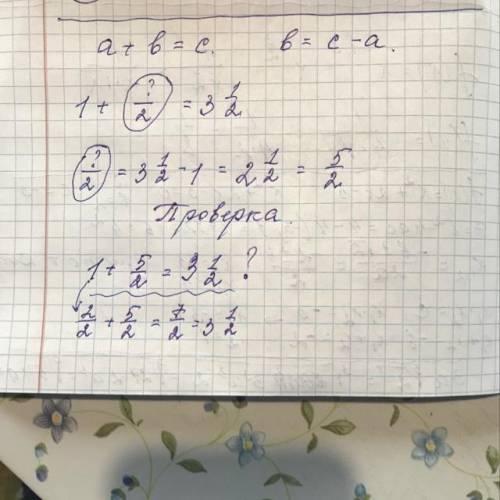 a + b = c. b = c - a.
1 + ?/2 = 3 1/2
?/2 = 3 1/2 - 1 = 2 1/2 = 5/2
Проверка.
1 + 5/2 = 3 1/2 ?
2/2 + 5/2 = 7/2 = 3 1/2